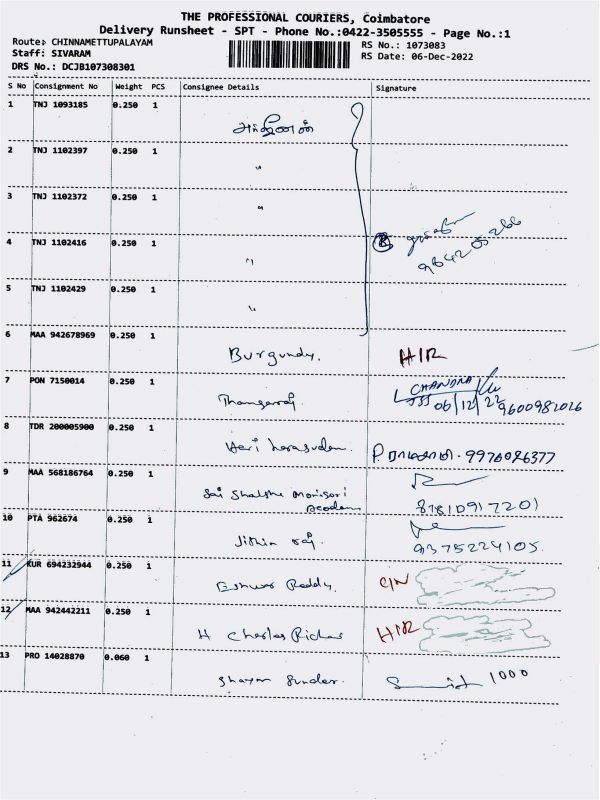 THE PROFESSIONAL COURIERS, Coimbatore
Delivery Runsheet - SPT - Phone No.:0422-3505555 - Page No.:1
Route: CHINNAMETTUPALAYAM
RS No.: 1073083
Staff: SIVARAM
RS Date: 06-Dec-2022
DRS No.: DCJB107308301
S No Consignment No Weight PCS Consignee Details Signature
1 TNJ 1093185 0.250 1
2 TNJ 1102397 0.250 1 "
3 TNJ 1102372 0.250 1 "
4 TNJ 1102416 0.250 1 "
5 TNJ 1102429 0.250 1 "
6 MAA 942678969 0.250 1 Burgundy. H/R
7 PON 7150014 0.250 1 Thangaraj. CHANDRA
06/12/22 9600982026
8 TDR 200005900 0.250 1 Hari 9976096377
9 MAA 568186764 0.250 1 Sai
87810917201
10 PTA 962674 0.250 1 Jithin raj.
9375224105.
11 KUR 694232944 0.250 1 Eshwar Reddy. C/N
12 MAA 942442211 0.250 1 H Charles Richar H/R
13 PRO 14028870 0.060 1 Shayam Sunder. 1000